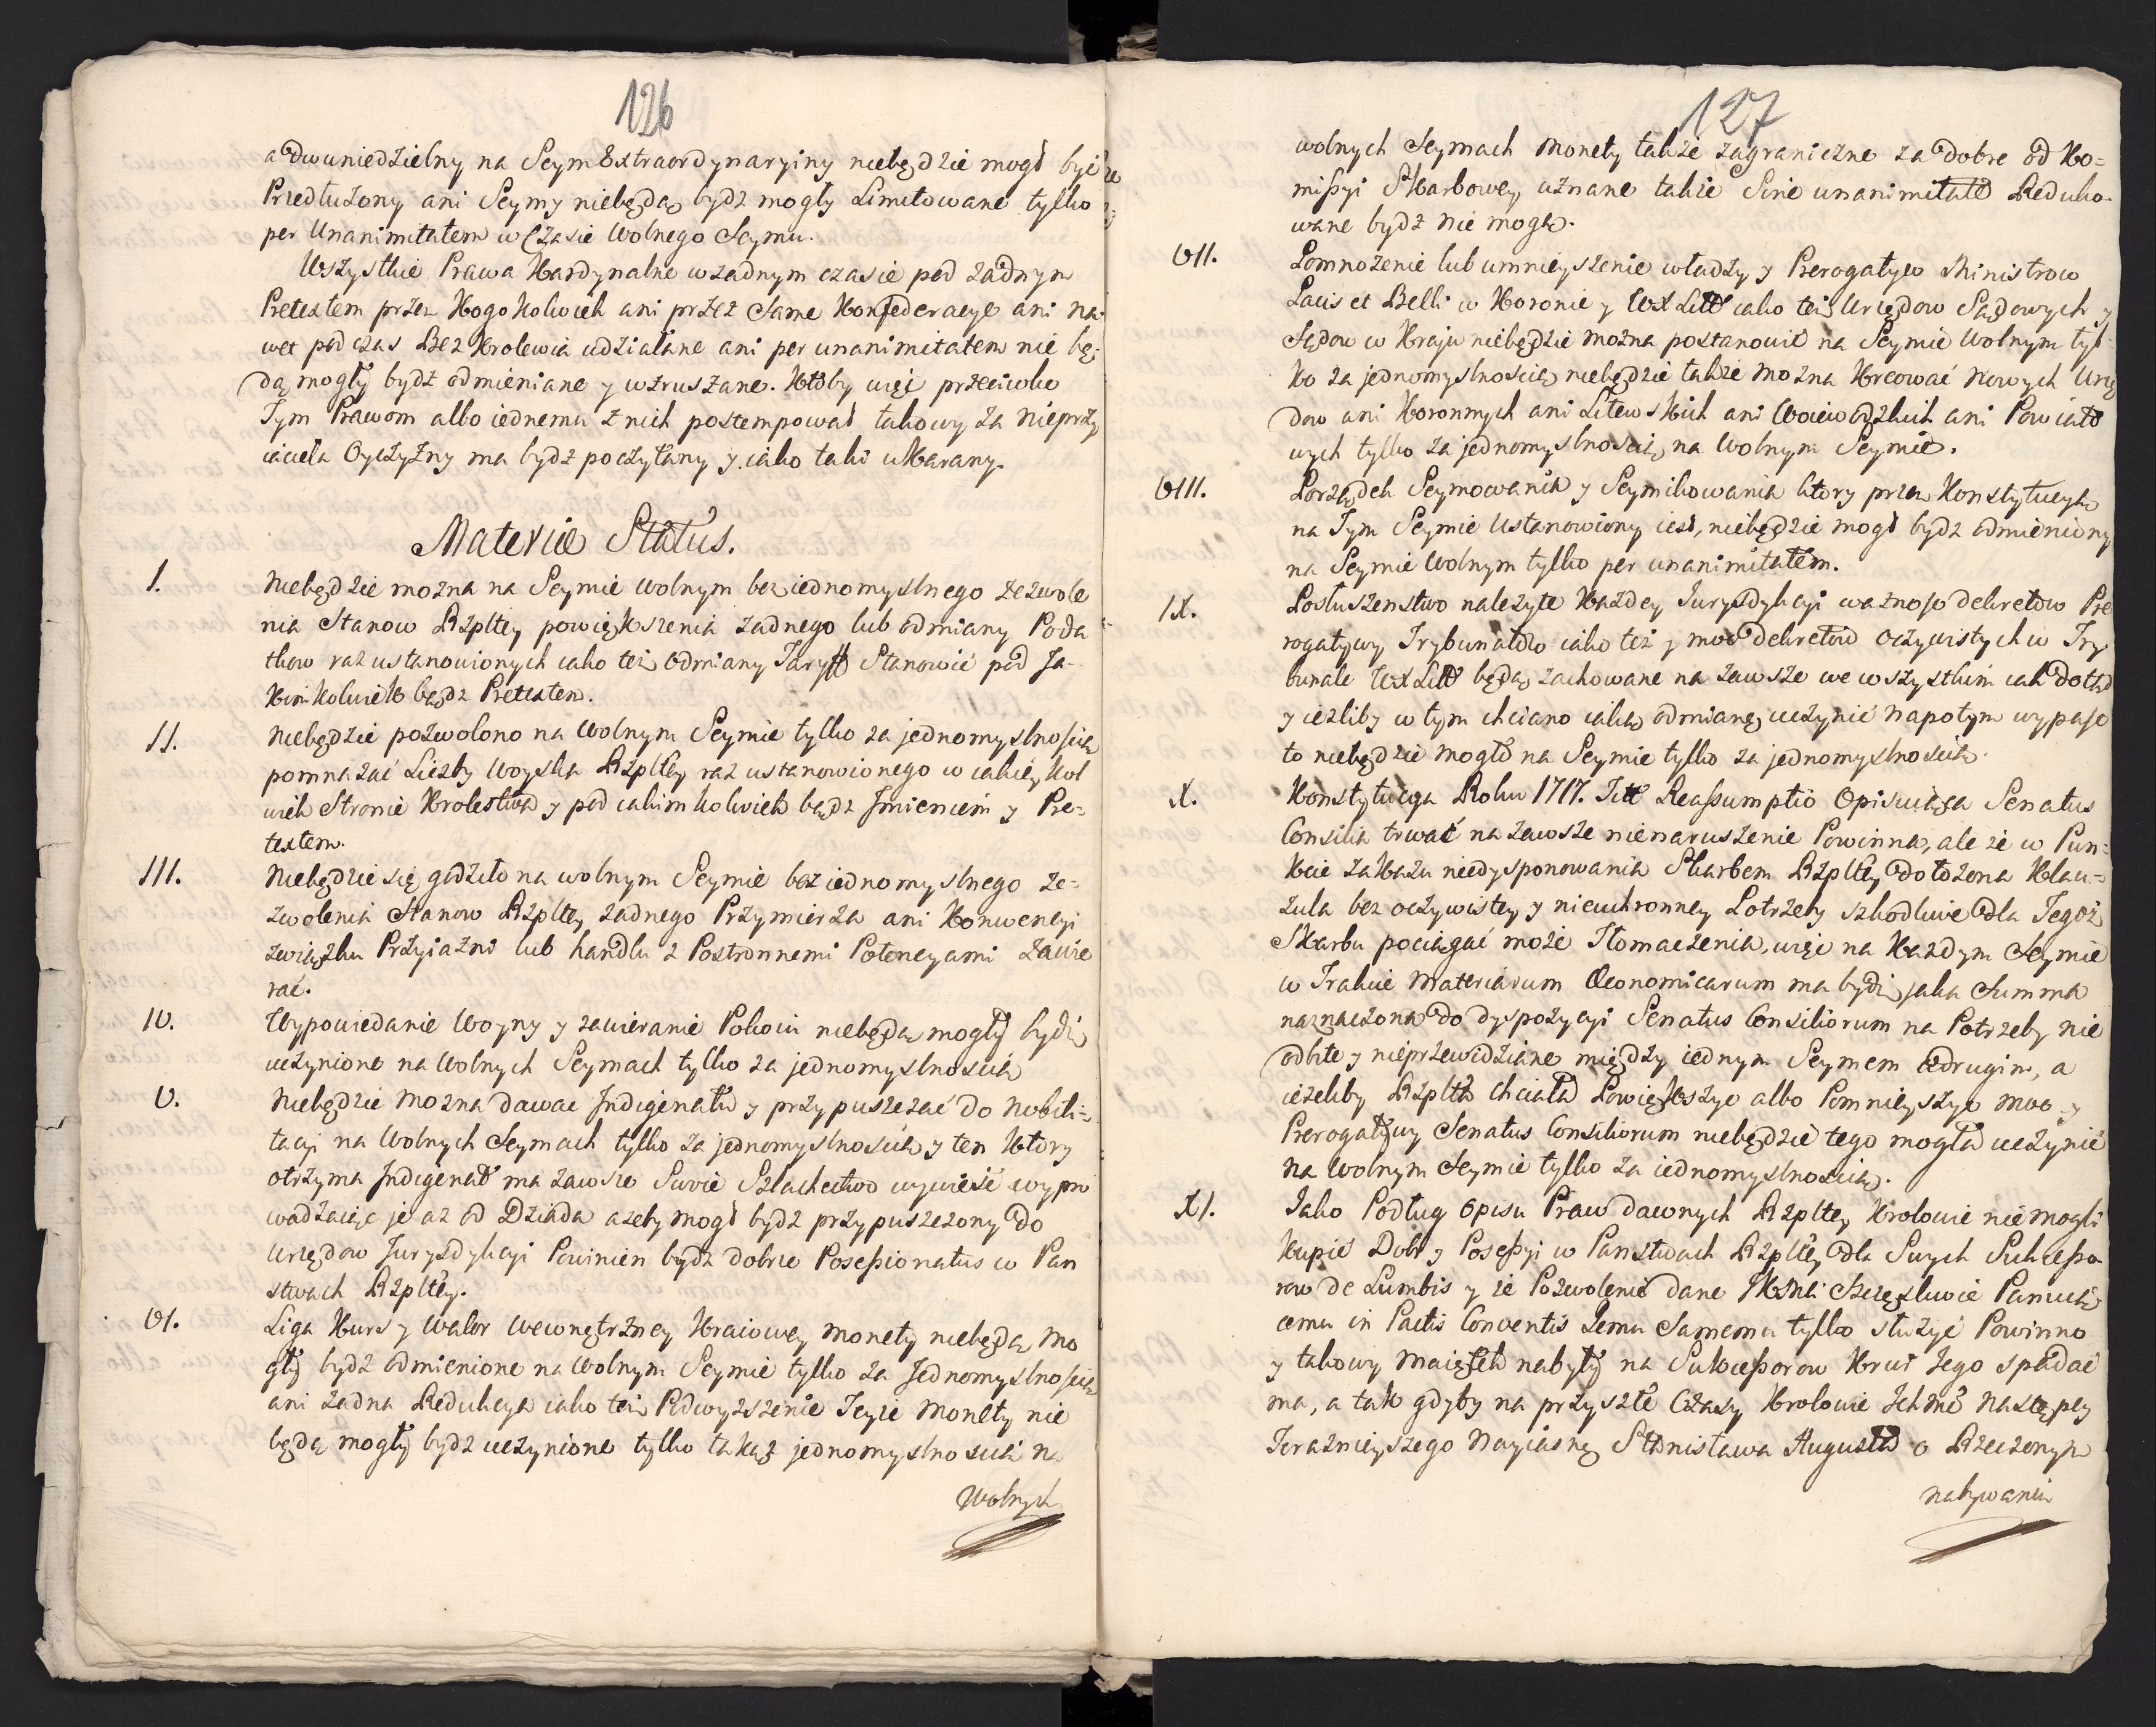 126
a dwuniedzielny na Seym Extraordynaryiny niebędzie mogł być
Przedłużony ani Seymy niebędą bydz mogły Limitowane tylko
per Unanimitatem w Czasie Wolnego Seymu.
Wszystkie Prawa Kardynalne w zadnym czasie pod zadnym
Pretextem przez Kogokolwiek ani przez Same Konfederacye ani na-
wet podczas Bez Krolewia udziałane ani per unanimitatem nie bę-
dą mogły bydź odmieniane y wzruszane. Ktoby więc przeciwko
Tym Prawom albo iednemu z nich postempował takowy za nieprzy
iaciela Oyczyzny ma bydz poczytany y iako taki ukarany.
Materiæ Status.
I.
Niebędzie mozna na Seymie wolnym bez iednomyslnego zezwole
nia Stanow Rzpltey powiększenia zadnego lub odmiany Poda
tkow raz ustanowionych iako też odmiany Taryff Stanowić pod Ja-
kimkolwiek bądz Pretextem.
II.
Niebędzie pozwolono na Wolnym Seymie tylko za jednomyslnoscią
pomnażać Liczby Woyska Rzpltey raz ustanowionego w iakiey kol
wiek Stronie Krolestwa y pod iakimkolwiek bądz Jmieniem y Pre-
textem.
III.
Niebędzie się godziło na wolnym Seymie bez iednomyslnego ze-
zwolenia Stanow Rzpltey zadnego Przymierza ani Konwencyi
związku Przyiazni lub handlu z Postronnemi Potencyami zawie
rać.
IV.
Wypowiedanie Woyny y zawieranie Pokoiu niebędą mogły bydź
uczynione na Wolnych Seymach tylko za jednomyslnoscią
V.
Niebędzie mozna dawac Indigenatu y przypuszczać do Nobili-
tacyi na Wolnych Seymach tylko za jednomyslnoscią y ten Ktory
otrzyma Indigenat ma zawsze Swoie Szlachectwo wywieść wypro
wadzaiąc je az od Dziada azeby mogł bydź przypuszczony do
Urzędow Jurysdykcyi Powinien bydź dobrze Possessionatus w Pan
stwach Rzpltey.
VI.
Liga Kurs y Walor Wewnętrzney Kraiowey Monety niebędą mo
gły bydź odmienione na Wolnym Seymie tylko za Jednomyslnoscią
ani żadna Redukcya iako też Podwyzszenie Teyże Monety nie
będą mogły bydz uczynione tylko takąż jednomyslnoscią na
Wolnych
127
wolnych Seymach Monety także zagraniczne za dobre od Ko-
missyi Skarbowey uznane także Sine unanimitate Reduko-
wane bydź nie mogą.
VII.
Pomnożenie lub umnieyszenie władzy y Prerogatyw Ministrow
Pacis et Belli w Koronie y WXLitt iako też Urzędow Sądowych y
Sądow w Kraju niebędzie można postanowić na Seymie Wolnym tyl-
ko za jednomyslnoscią niebędzie także mozna Kreować Nowych Urzę
dow ani Koronnych ani Litewskich ani Woiewodzkich ani Powiato
wych tylko za jednomyslnoscią na Wolnym Seymie.
VIII.
Porządek Seymowania y Seymikowania ktory przez Konstytucyą
na Tym Seymie Ustanowiony iest, niebędzie mogł bydz odmieniony
na Seymie Wolnym tylko per unanimitatem.
IX.
Posłuszenstwo należyte Każdey Jurysdykcyi ważnosc dekretow Pre
rogatywy Trybunałow iako też y moc dekretow Oczywistych w Try
bunale WXLitt będą zachowane na zawsze we wszystkim iak dotąd
y iezliby w tym chciano iaką odmianę uczynić Napotym wypasc
to niebędzie mogło na Seymie tylko za jednomyslnoscią.
X.
Konstytucya Roku 1717. Titt Reassumptio Opisuiąca Senatus
Consilia trwać na zawsze nienaruszenie Powinna, ale że w Pun-
kcie zakazu niedysponowania Skarbem Rzpltey dołożona Klau-
zula bez oczywistey y nieuchronney Potrzeby szkodliwe dla Tegoż
Skarbu pociągać może Tłomaczenia, więc na Każdym Seymie
w Trakcie Materiarum Œconomicarum ma bydź jaka Summa
naznaczona do dyspozycyi Senatus Consiliorum na Potrzeby nie
odbite y nieprzewidziane między iednym Seymem a drugim, a
ieżeliby Rzplta chciała Powiększyc albo Pomnieyszyc moc y
Prerogatywy Senatus Consiliorum niebędzie tego mogła uczynić
na Wolnym Seymie tylko za iednomyslnoscią.
XI.
Jako Podług Opisu Praw dawnych Rzpltey Krolowie nie mogli
Kupić Dobr y Possessyi w Panstwach Rzpltey dla Swych Sukcesso
row de Lumbis y że Pozwolenie dane JKMci Szczęsliwie Panuią
cemu in Pactis Conventis Jemu Samemu tylko służyć Powinno
y takowy Maiątek nabyty na Sukcessorow Krwi Jego spadać
ma, a tak gdyby na przyszłe Czasy Krolowie Jchmć Nastąpcy
Teraznieyszego Nayiasnę Stanisława Augusta o Rzeczonym
nabywaniu